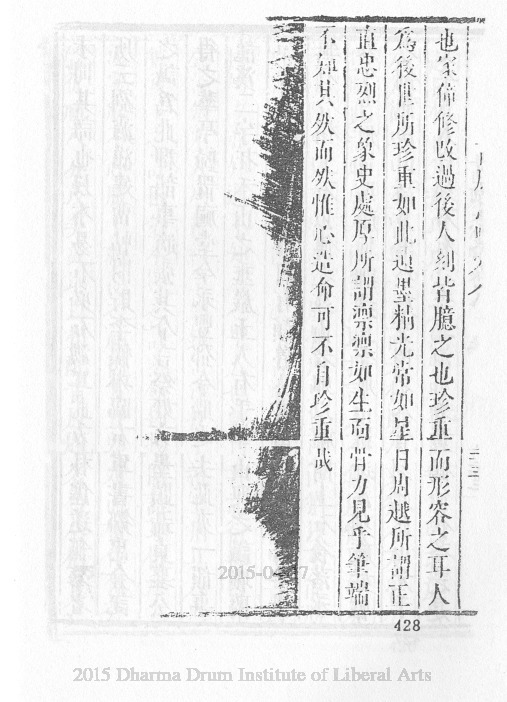 也家傳修改過後人刻皆臆之也珍重而形容之耳人
為後世所珍重如此過墨精光常如星日周越所謂正
直忠烈之象史處厚所謂凛凛如生面骨力見乎筆端
不知其然而然惟心造命可不自珍重哉
428
2015-0
2015 Dharma Drum Institute of Liberal Arts